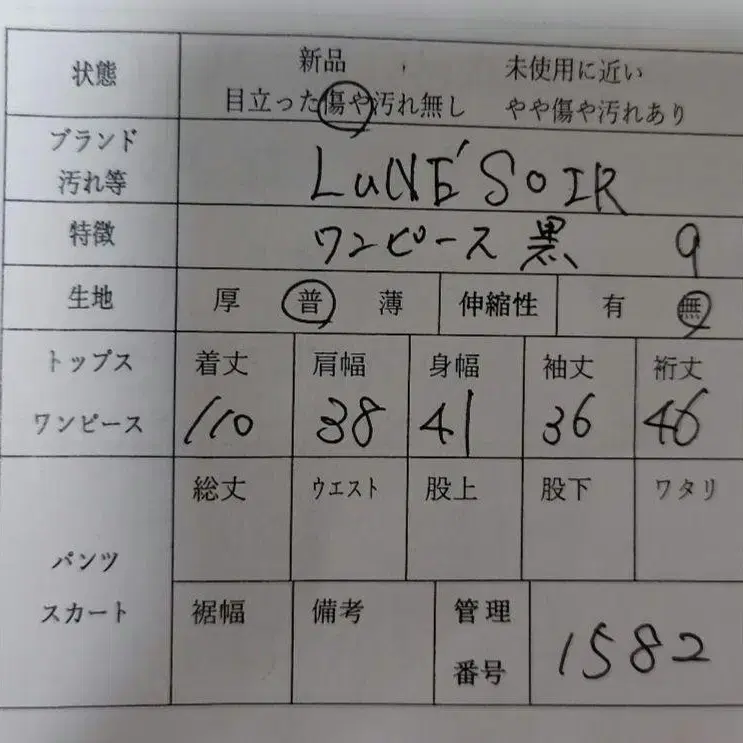 状態 新品 未使用に近い
目立った傷や汚れ無し やや傷や汚れあり
ブランド
汚れ等 LUNÉ SOIR
特徴 ワンピース 黒 9
生地 厚 普 薄 伸縮性 有 無
トップス 着丈 肩幅 身幅 袖丈 裄丈
ワンピース 110 38 41 36 46
総丈 ウエスト 股上 股下 ワタリ
パンツ
スカート 裾幅 備考 管理
番号 1582